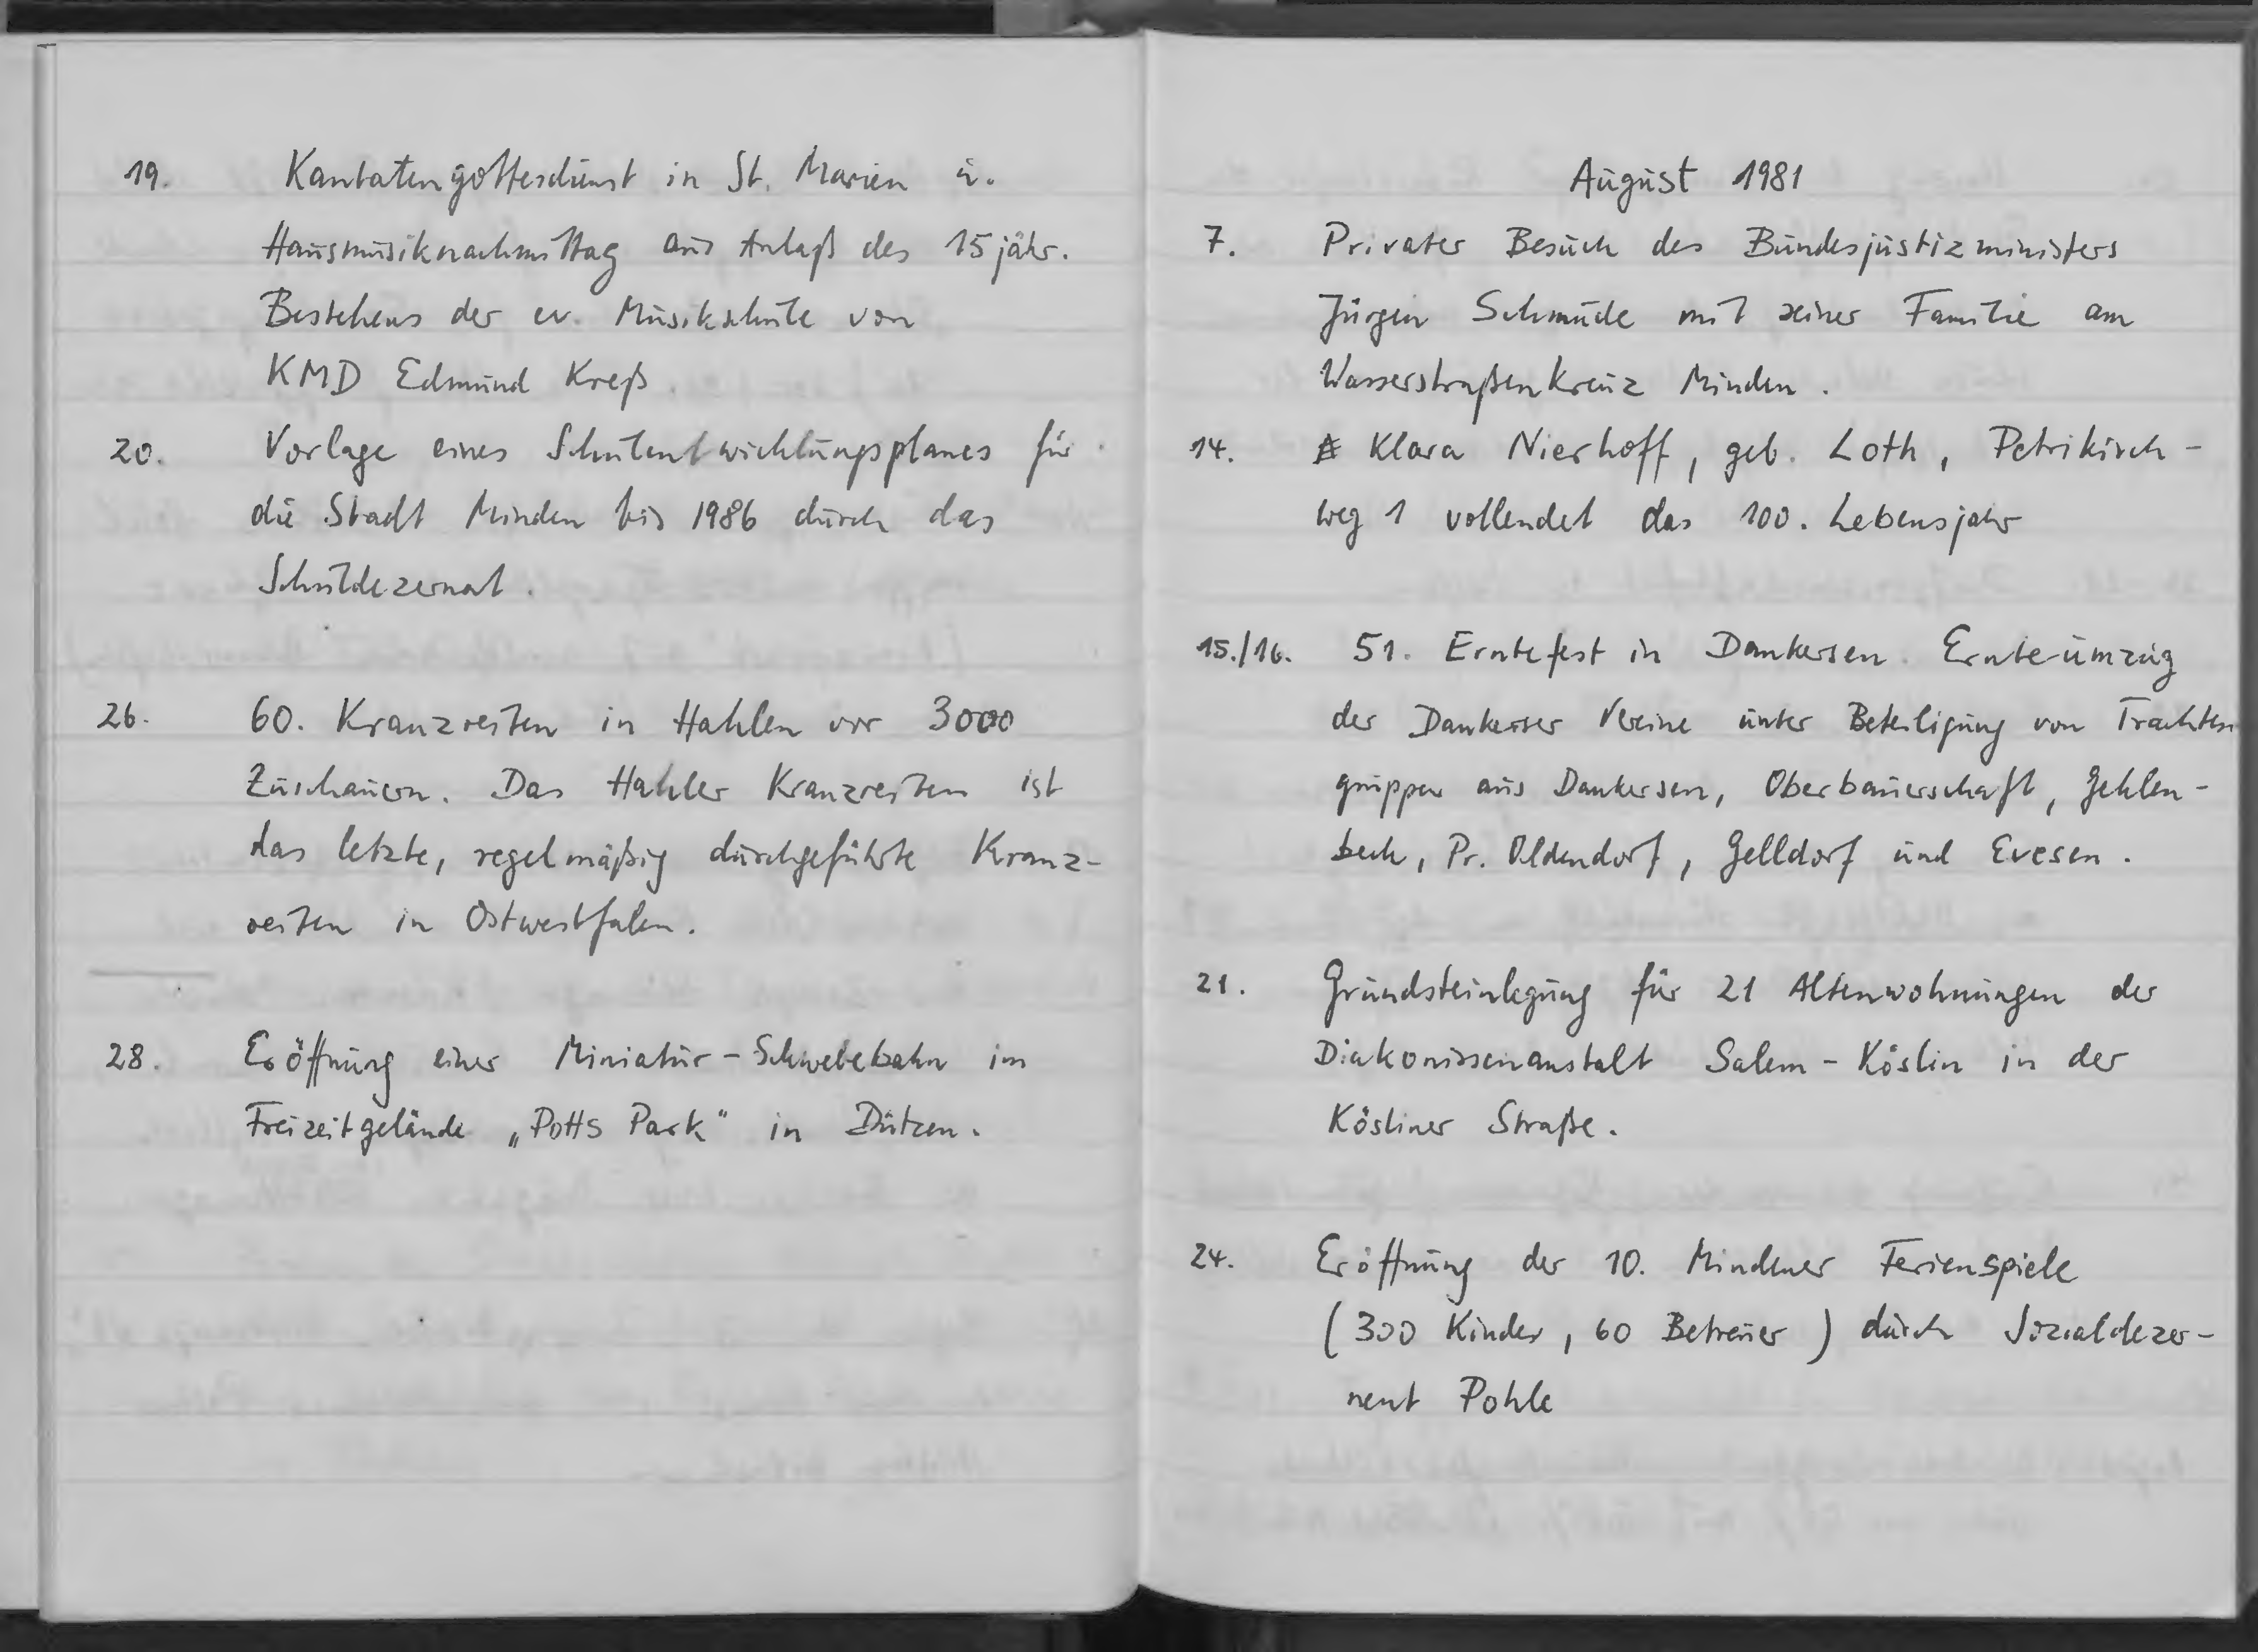 19. Kantatengottesdienst in St. Marien u.
Hausmusiknachmittag aus Anlaß des 15jähr.
Bestehens der ev. Musikschule von
KMD Edmund Kreß.
20. Vorlage eines Schulentwicklungsplanes für
die Stadt Minden bis 1986 durch das
Schuldezernat.
26. 60. Kranzreiten in Hahlen vor 3000
Zuschauern. Das Hahler Kranzreiten ist
das letzte, regelmäßig durchgeführte Kranz-
reiten in Ostwestfalen.
28. Eröffnung einer Miniatur-Schwebebahn im
Freizeitgelände „Potts Park" in Dützen.
August 1981
7. Privater Besuch des Bundesjustizministers
Jürgen Schmude mit seiner Familie am
Wasserstraßenkreuz Minden.
14. Klara Nierhoff, geb. Loth, Petrikirch-
weg 1 vollendet das 100. Lebensjahr
15./16. 51. Erntefest in Dankersen. Ernteumzug
der Dankerser Vereine unter Beteiligung von Trachten
gruppen aus Dankersen, Oberbauerschaft, Gehlen-
beck, Pr. Oldendorf, Gelldorf und Evesen.
21. Grundsteinlegung für 21 Altenwohnungen der
Diakonissenanstalt Salem-Köslin in der
Kösliner Straße.
24. Eröffnung der 10. Mindener Ferienspiele
(300 Kinder, 60 Betreuer) durch Sozialdezer-
nent Pohle